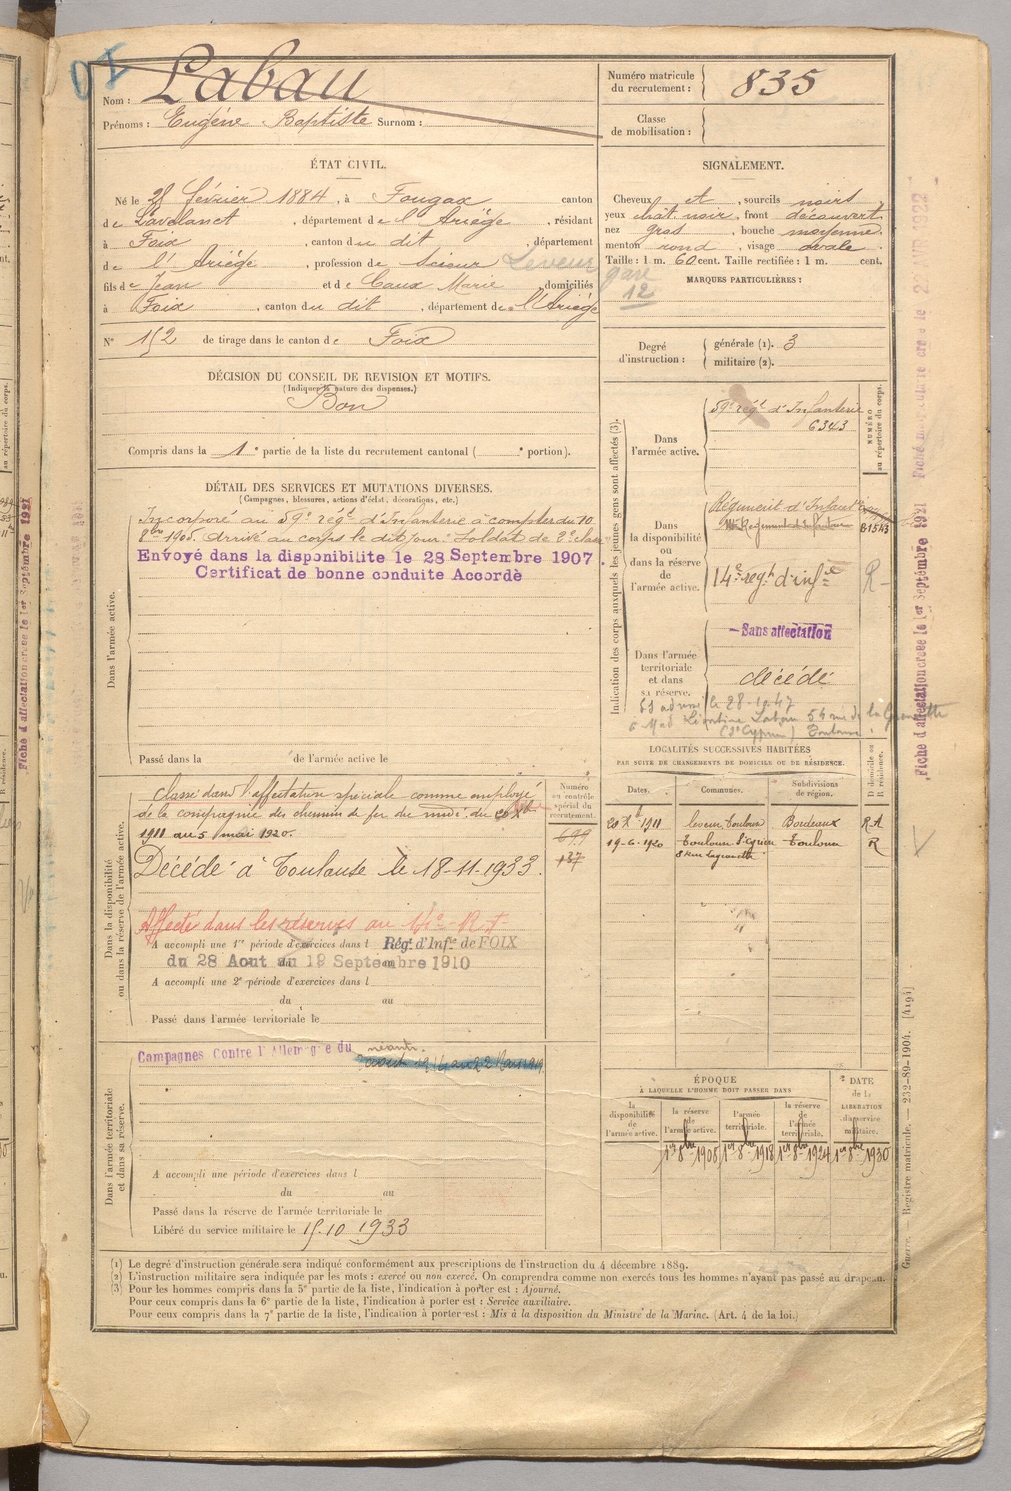 Nom : Labau
Prénoms : Eugène Baptiste Surnom :
Numéro matricule du recrutement : 835
Classe de mobilisation :
ÉTAT CIVIL.
Né le 28 février 1884, à Fougax canton
de Lavelanet, département de l'Ariège, résidant
à Foix, canton du dit, département
de l'Ariège, profession de Scieur Leveur gare
12
fils de Jean et de Caux Marie, domiciliés
à Foix, canton du dit, département de l'Ariège
N° 152 de tirage dans le canton de Foix
SIGNALEMENT.
Cheveux et, sourcils noirs
yeux chât. noir, front découvert
nez gros, bouche moyenne.
menton rond, visage ovale
Taille : 1 m. 60 cent. Taille rectifiée : 1 m. cent.
MARQUES PARTICULIÈRES :
Degré d'instruction : générale (1). 3
militaire (2).
DÉCISION DU CONSEIL DE REVISION ET MOTIFS.
(Indiquer la nature des dispenses.)
Bon
Compris dans la 1e partie de la liste du recrutement cantonal ( e portion).
DÉTAIL DES SERVICES ET MUTATIONS DIVERSES.
(Campagnes, blessures, actions d'éclat, décorations, etc.)
Dans l'armée active.
Incorporé au 59e régt d'Infanterie à compter du 10
8bre 1905. Arrivé au corps le dit jour. Soldat de 2e classe
Envoyé dans la disponibilité le 28 Septembre 1907.
Certificat de bonne conduite Accordé
Passé dans la de l'armée active le
Indication des corps auxquels les jeunes gens sont affectés (3).
NUMÉRO au répertoire du corps.
Dans l'armée active.
59e régt d'Infanterie
6343
Dans la disponibilité ou dans la réserve de l'armée active.
Régiment d'Infanterie
B1543
14e régt d'infie
R
Dans l'armée territoriale et dans sa réserve.
Sans affectation
décédé
le 28-10-47
à Mad Léontine Labau 54 rue de la
(St Cyprien) Toulouse.
Dans la disponibilité ou dans la réserve de l'armée active.
Classé dans l'affectation spéciale comme employé
de la compagnie des chemins de fer du midi, du 20 Xbre
1911 au 5 mai 1920.
Décédé à Toulouse le 18-11-1933.
Affecté dans les réserves au 14e R I
A accompli une 1re période d'exercices dans l Rég. d'Infie de FOIX
du 28 Aout au 19 Septembre 1910
A accompli une 2e période d'exercices dans l
du au
Passé dans l'armée territoriale le
Numéro au contrôle spécial du recrutement.
699
137
LOCALITÉS SUCCESSIVES HABITÉES
PAR SUITE DE CHANGEMENTS DE DOMICILE OU DE RÉSIDENCE.
Dates. Communes. Subdivisions de région. D domicile ou R résidence.
20 Xb 1911 Toulouse Bordeaux R A
19-6-1920 Toulouse St Cyprien Toulouse R
8 rue Lagranette
Dans l'armée territoriale et dans sa réserve.
Campagnes Contre l'Allemagne du néant.
A accompli une période d'exercices dans l
du au
Passé dans la réserve de l'armée territoriale le
Libéré du service militaire le 15.10.1933
ÉPOQUE
À LAQUELLE L'HOMME DOIT PASSER DANS
la disponibilité de l'armée active.
la réserve de l'armée active.
l'armée territoriale.
la réserve de l'armée territoriale.
DATE de la LIBÉRATION du service militaire.
1er 8bre 1908 1er 8bre 1918 1er 8bre 1924 1er 8bre 1930
(1) Le degré d'instruction générale sera indiqué conformément aux prescriptions de l'instruction du 4 décembre 1889.
(2) L'instruction militaire sera indiquée par les mots : exercé ou non exercé. On comprendra comme non exercés tous les hommes n'ayant pas passé au drapeau.
(3) Pour les hommes compris dans la 5e partie de la liste, l'indication à porter est : Ajourné.
Pour ceux compris dans la 6e partie de la liste, l'indication à porter est : Service auxiliaire.
Pour ceux compris dans la 7e partie de la liste, l'indication à porter est : Mis à la disposition du Ministre de la Marine. (Art. 4 de la loi.)
Guerre. — Registre matricule. — 232-89-1904. [4194]
Fiche d'affectation créée le 1er Septembre 1921
Fiche d'affectation créée le 1er Septembre 1921